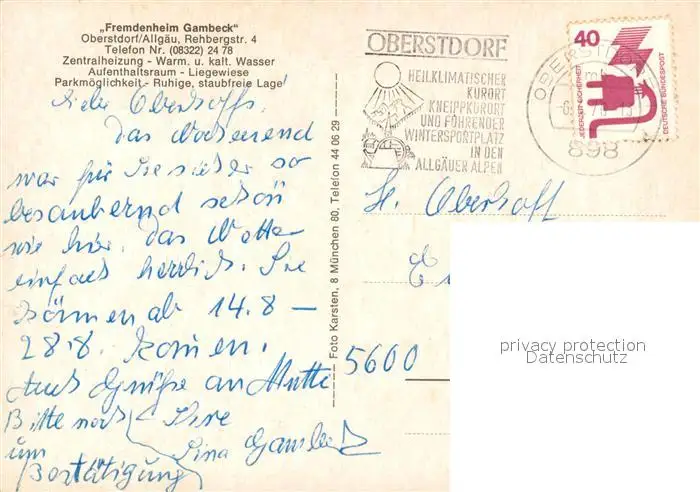 „Fremdenheim Gambeck"
Oberstdorf/Allgäu, Rehbergstr. 4
Telefon Nr. (08322) 24 78
Zentralheizung - Warm. u. kalt. Wasser
Aufenthaltsraum - Liegewiese
Parkmöglichkeit - Ruhige, staubfreie Lage
Liebe Oberhoffs,
das Wochenend
war für Sie sicher so
bezaubernd schön
wie hier. Das Wetter
einfach herrlich. Sie
können ab 14.8 –
28.8. komen.
Auch Grüße an Mutti
Bitte noch Ihre
um Sina Gambeck
Bestätigung
Foto Karsten, 8 München 80, Telefon 44 06 29
OBERSTDORF
HEILKLIMATISCHER
KURORT
KNEIPPKURORT
UND FÜHRENDER
WINTERSPORTPLATZ
IN DEN
ALLGÄUER ALPEN
OBERSTDORF
898
40
JEDERZEIT SICHERHEIT
DEUTSCHE BUNDESPOST
Oberhoff
5600
privacy protection
Datenschutz